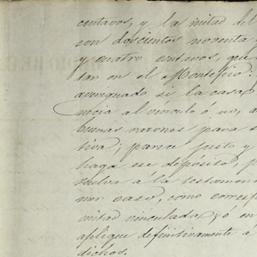 centavos, y la mitad del
son doscientos noventa
y cuatro centavos, que
tan en el Montepio.
averiguado si la casa
necia al vínculo ó no, a
buenas razones para s
tiva; parece justo y
haga ese depósito, p
vuelva á la testamen
mer caso, como corresp
mitad vinculada, ó en
aplique definitivamente á
dichos.